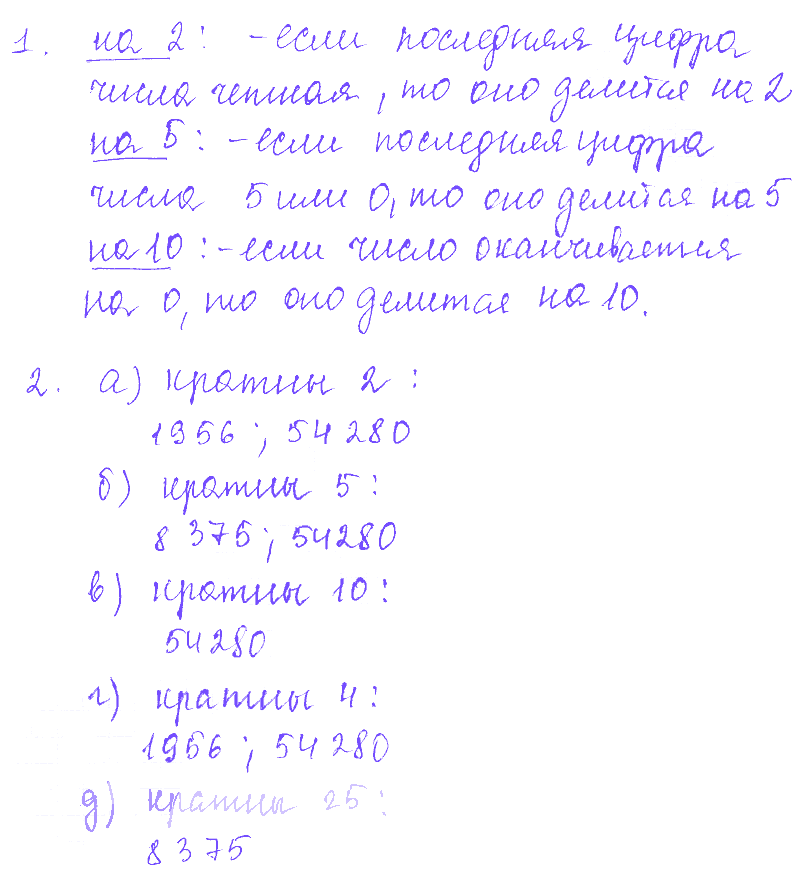 1. на 2: - если последняя цифра
числа четная, то оно делится на 2
на 5: - если последняя цифра
числа 5 или 0, то оно делится на 5
на 10: - если число оканчивается
на 0, то оно делится на 10.
2. а) кратны 2:
1956; 54280
б) кратны 5:
8375; 54280
в) кратны 10:
54280
г) кратны 4:
1956; 54280
д) кратны 25:
8375